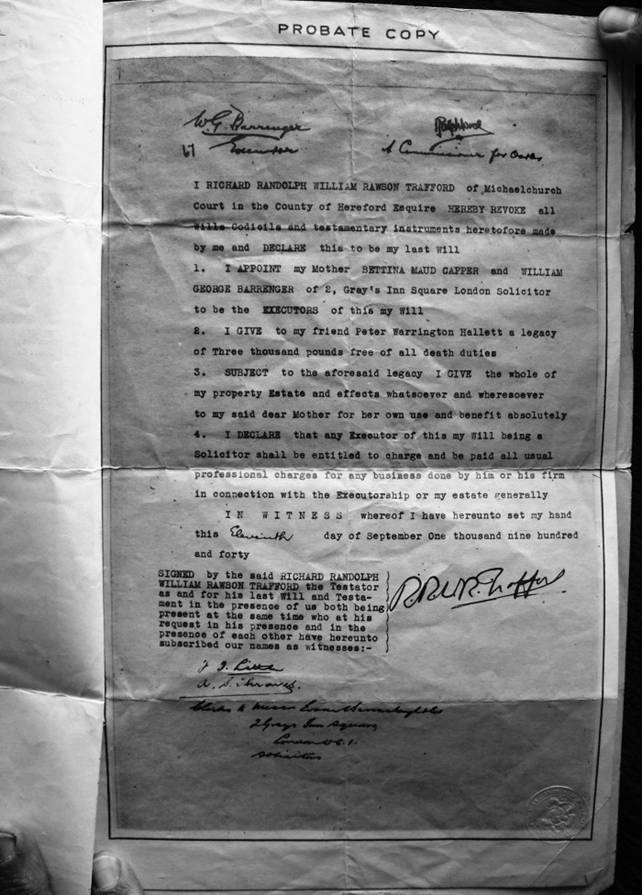 PROBATE COPY
W G. Barrenger
Executor
A Commissioner for Oaths
I RICHARD RANDOLPH WILLIAM RAWSON TRAFFORD of Michaelchurch
Court in the County of Hereford Esquire HEREBY REVOKE all
Wills Codicils and testamentary instruments heretofore made
by me and DECLARE this to be my last Will
1. I APPOINT my Mother BETTINA MAUD CAPPER and WILLIAM
GEORGE BARRENGER of 2, Gray's Inn Square London Solicitor
to be the EXECUTORS of this my Will
2. I GIVE to my friend Peter Warrington Hallett a legacy
of Three thousand pounds free of all death duties
3. SUBJECT to the aforesaid legacy I GIVE the whole of
my property Estate and effects whatsoever and wheresoever
to my said dear Mother for her own use and benefit absolutely
4. I DECLARE that any Executor of this my Will being a
Solicitor shall be entitled to charge and be paid all usual
professional charges for any business done by him or his firm
in connection with the Executorship or my estate generally
IN WITNESS whereof I have hereunto set my hand
this Eleventh day of September One thousand nine hundred
and forty
SIGNED by the said RICHARD RANDOLPH
WILLIAM RAWSON TRAFFORD the Testator
as and for his last Will and Testa-
ment in the presence of us both being
present at the same time who at his
request in his presence and in the
presence of each other have hereunto
subscribed our names as witnesses:-
R R W R. Trafford
Clerks to Messrs
2 Grays Inn Square
London W.C.1.
Solicitors